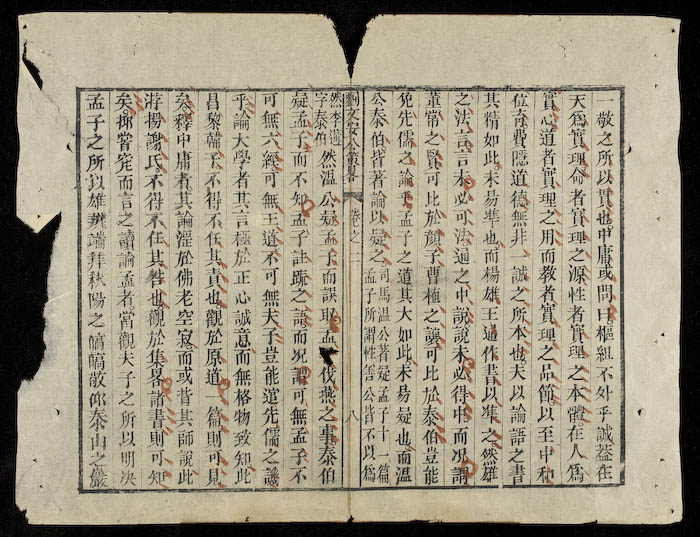 一敬之所以貫也中庸或問曰樞紐不外乎誠蓋在
天爲實理命者實理之源性者實理之本體在人爲
實心道者實理之用而教者實理之品節以至中和
位育費隱道德無非一誠之所本也夫以論語之書
其精如此未易準也而楊雄王通作書以準之然雄
之法言言未必可法通之中說說未必得中而况謂
董常之賢可比於顏子曹植之讓可比於泰伯豈能
免先儒之論乎孟子之道其大如此未易疑也而溫
公泰伯皆著論以疑之司馬溫公著疑孟子十一篇孟子所謂性善公皆不以爲
劉文安公策畧 卷之二 八
然李遘字泰伯然溫公疑孟子而誤取孟伐燕之事泰伯
疑孟子而不知孟子註疏之語而况謂可無孟子不
可無六經可無王道不可無夫子豈能逭先儒之議
乎論大學者其言極於正心誠意而無格物致知此
昌黎韓子不得不任其責也觀於原道一篇則可見
矣釋中庸者其論淫於佛老空寂而或背其師說此
游揚謝氏不得不任其咎也觀於集畧諸書則可知
矣抑嘗究而言之讀論孟者當觀夫子之所以明決
孟子之所以雄辨端拜秋陽之皜皜敬仰泰山之巖